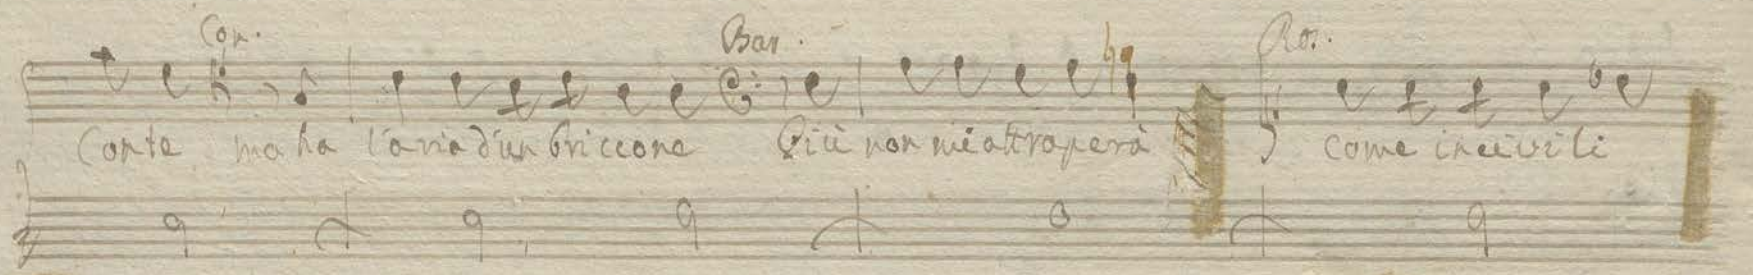 Con. Bar. Ros.
Conte ma ha l'aria d'un briccone Più non mi attraperà come incivili